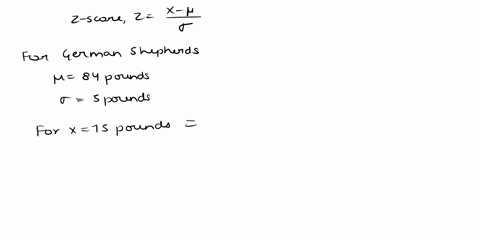 z-score, z = (x-μ)/σ
For German Shepherds
μ = 84 pounds
σ = 5 pounds
For x = 75 pounds =